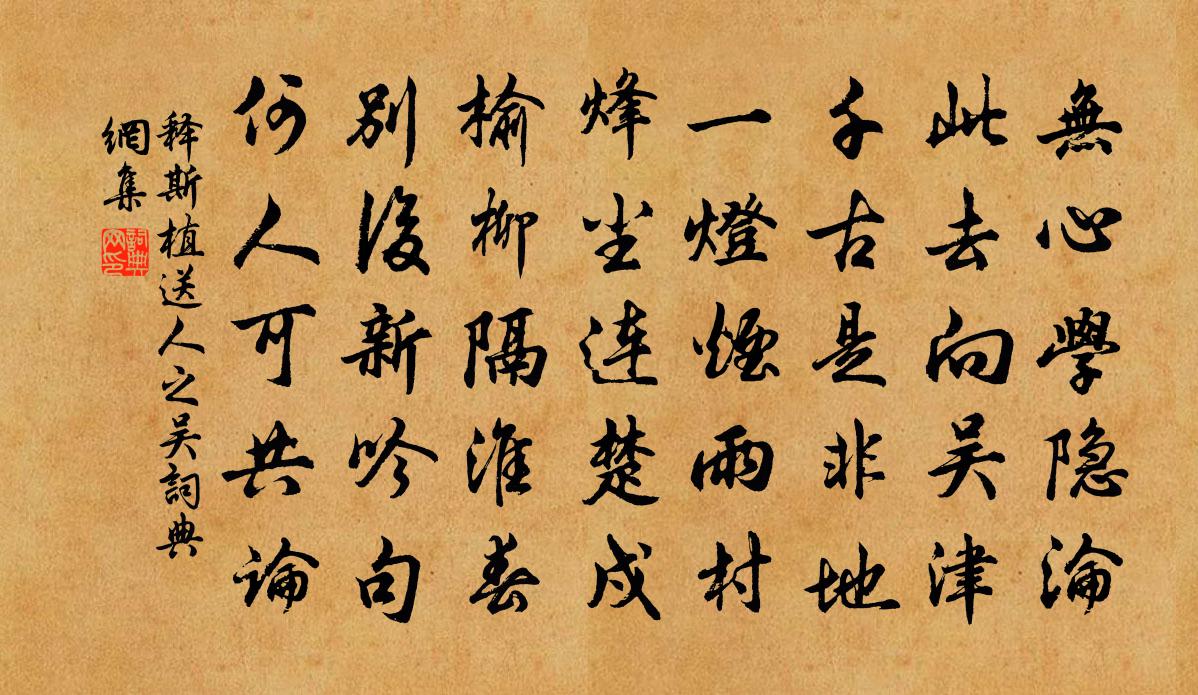 無心學隐淪
此去向吴津
千古是非地
一燈煙雨村
烽尘連楚戍
榆柳隔淮春
別後新吟句
何人可共論
释斯植送人之吴詞典
網集
詞典網印